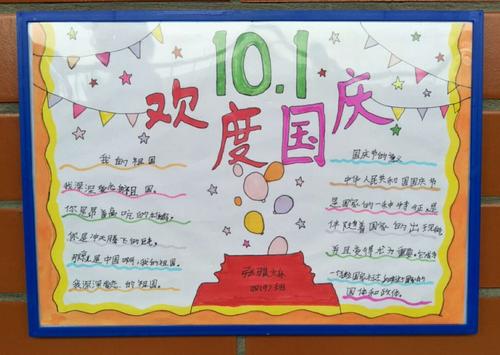 10.1
欢度国庆
我的祖国
我深深爱恋的祖国。
你是昂首高吭的
你是冲天腾飞的巨龙,
那就是中国啊,我的祖国。
我深深爱恋的祖国。
国庆节的意义
中华人民共和国国庆节
是国家的一种特征,是
伴随着国家的出现
并且变得尤为重要。它成为
一个独立国家的标志
国体和政体。